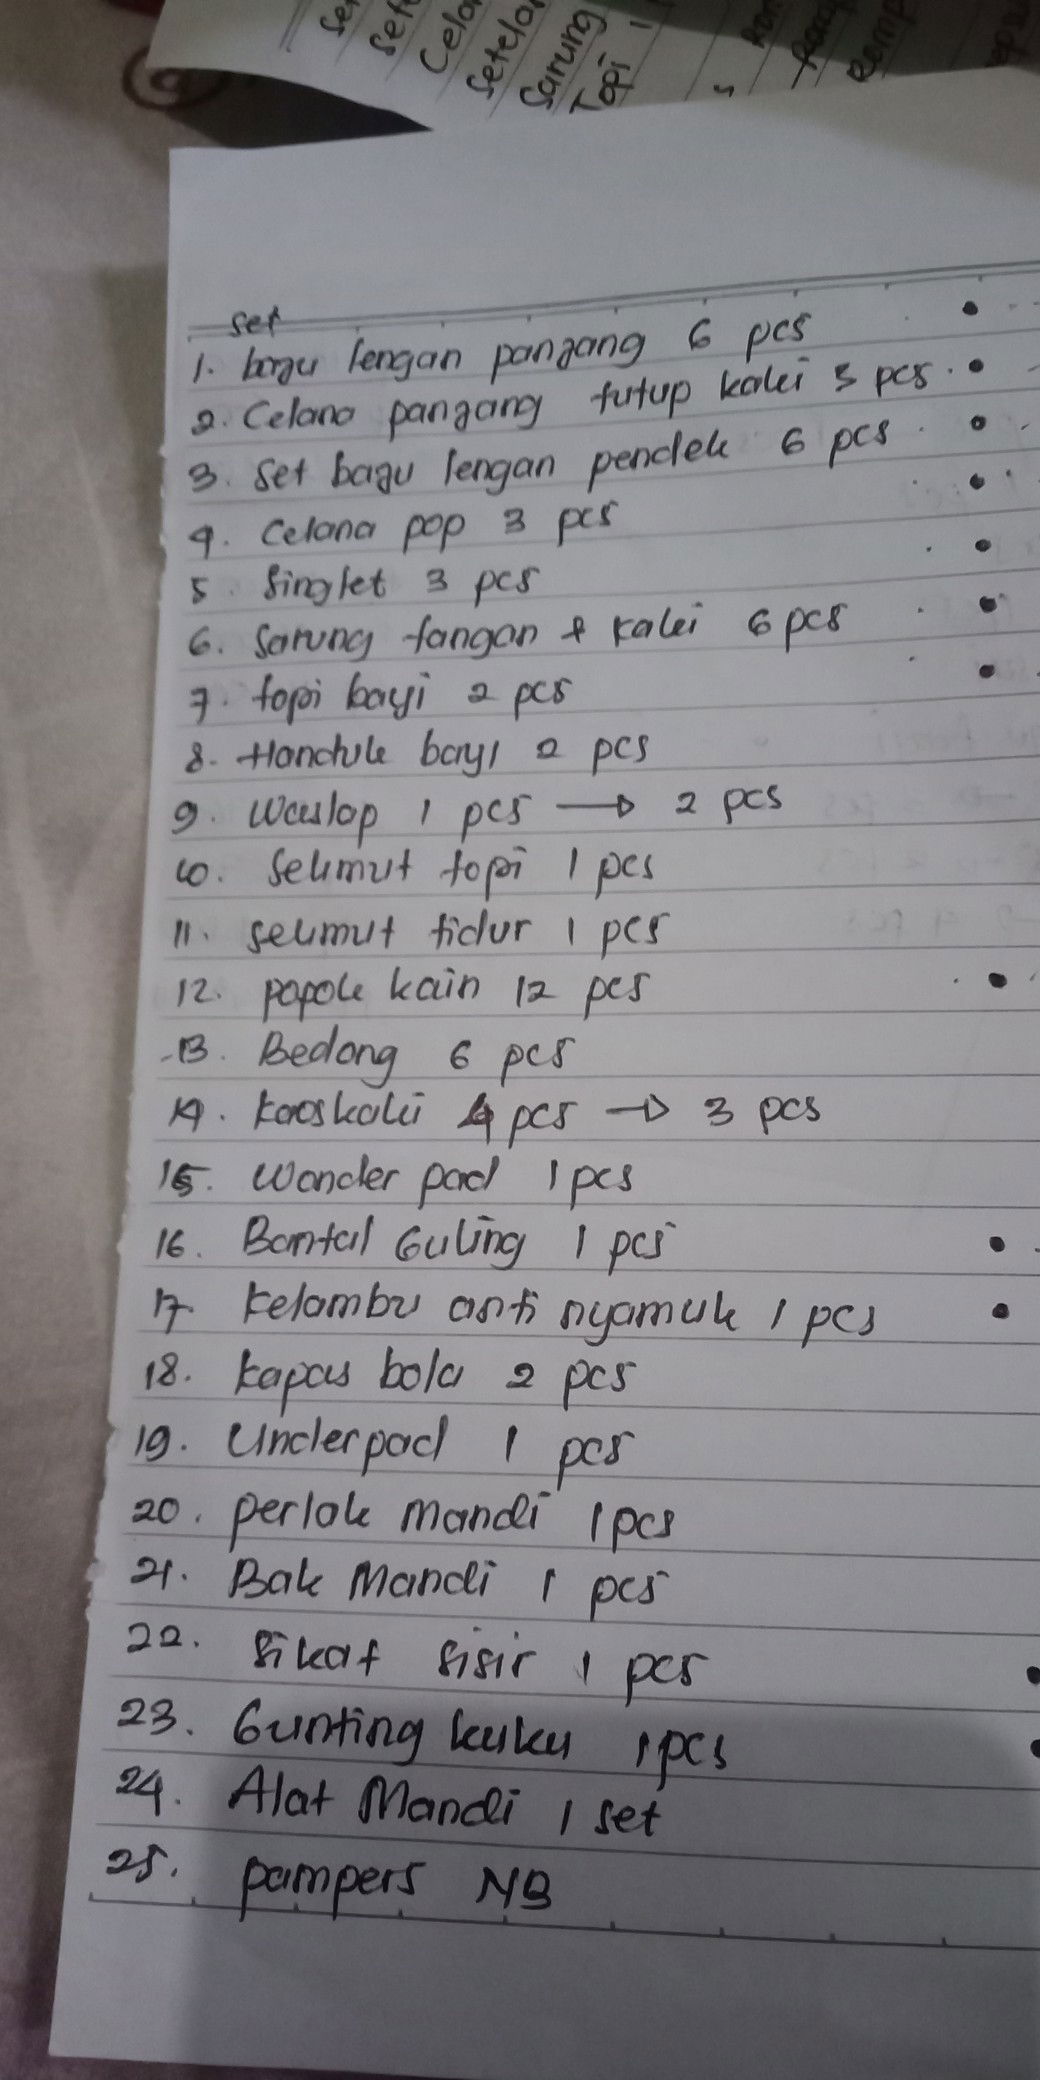 Sarung
Topi
set
1. baju lengan panjang 6 pcs
2. Celana panjang tutup kaki 3 pcs
3. Set baju lengan pendek 6 pcs
4. Celana pop 3 pcs
5. Singlet 3 pcs
6. Sarung tangan + kaki 6 pcs
7. topi bayi 2 pcs
8. Handuk bayi 2 pcs
9. Waslap 1 pcs → 2 pcs
10. Selimut topi 1 pcs
11. selimut tidur 1 pcs
12. popok kain 12 pcs
13. Bedong 6 pcs
14. kaoskaki 4 pcs → 3 pcs
15. Wonder pad 1 pcs
16. Bantal Guling 1 pcs
17. kelambu anti nyamuk 1 pcs
18. kapas bola 2 pcs
19. Underpad 1 pcs
20. perlak Mandi 1 pcs
21. Bak Mandi 1 pcs
22. Sikat sisir 1 pcs
23. Gunting kuku 1 pcs
24. Alat Mandi 1 set
25. pampers NB